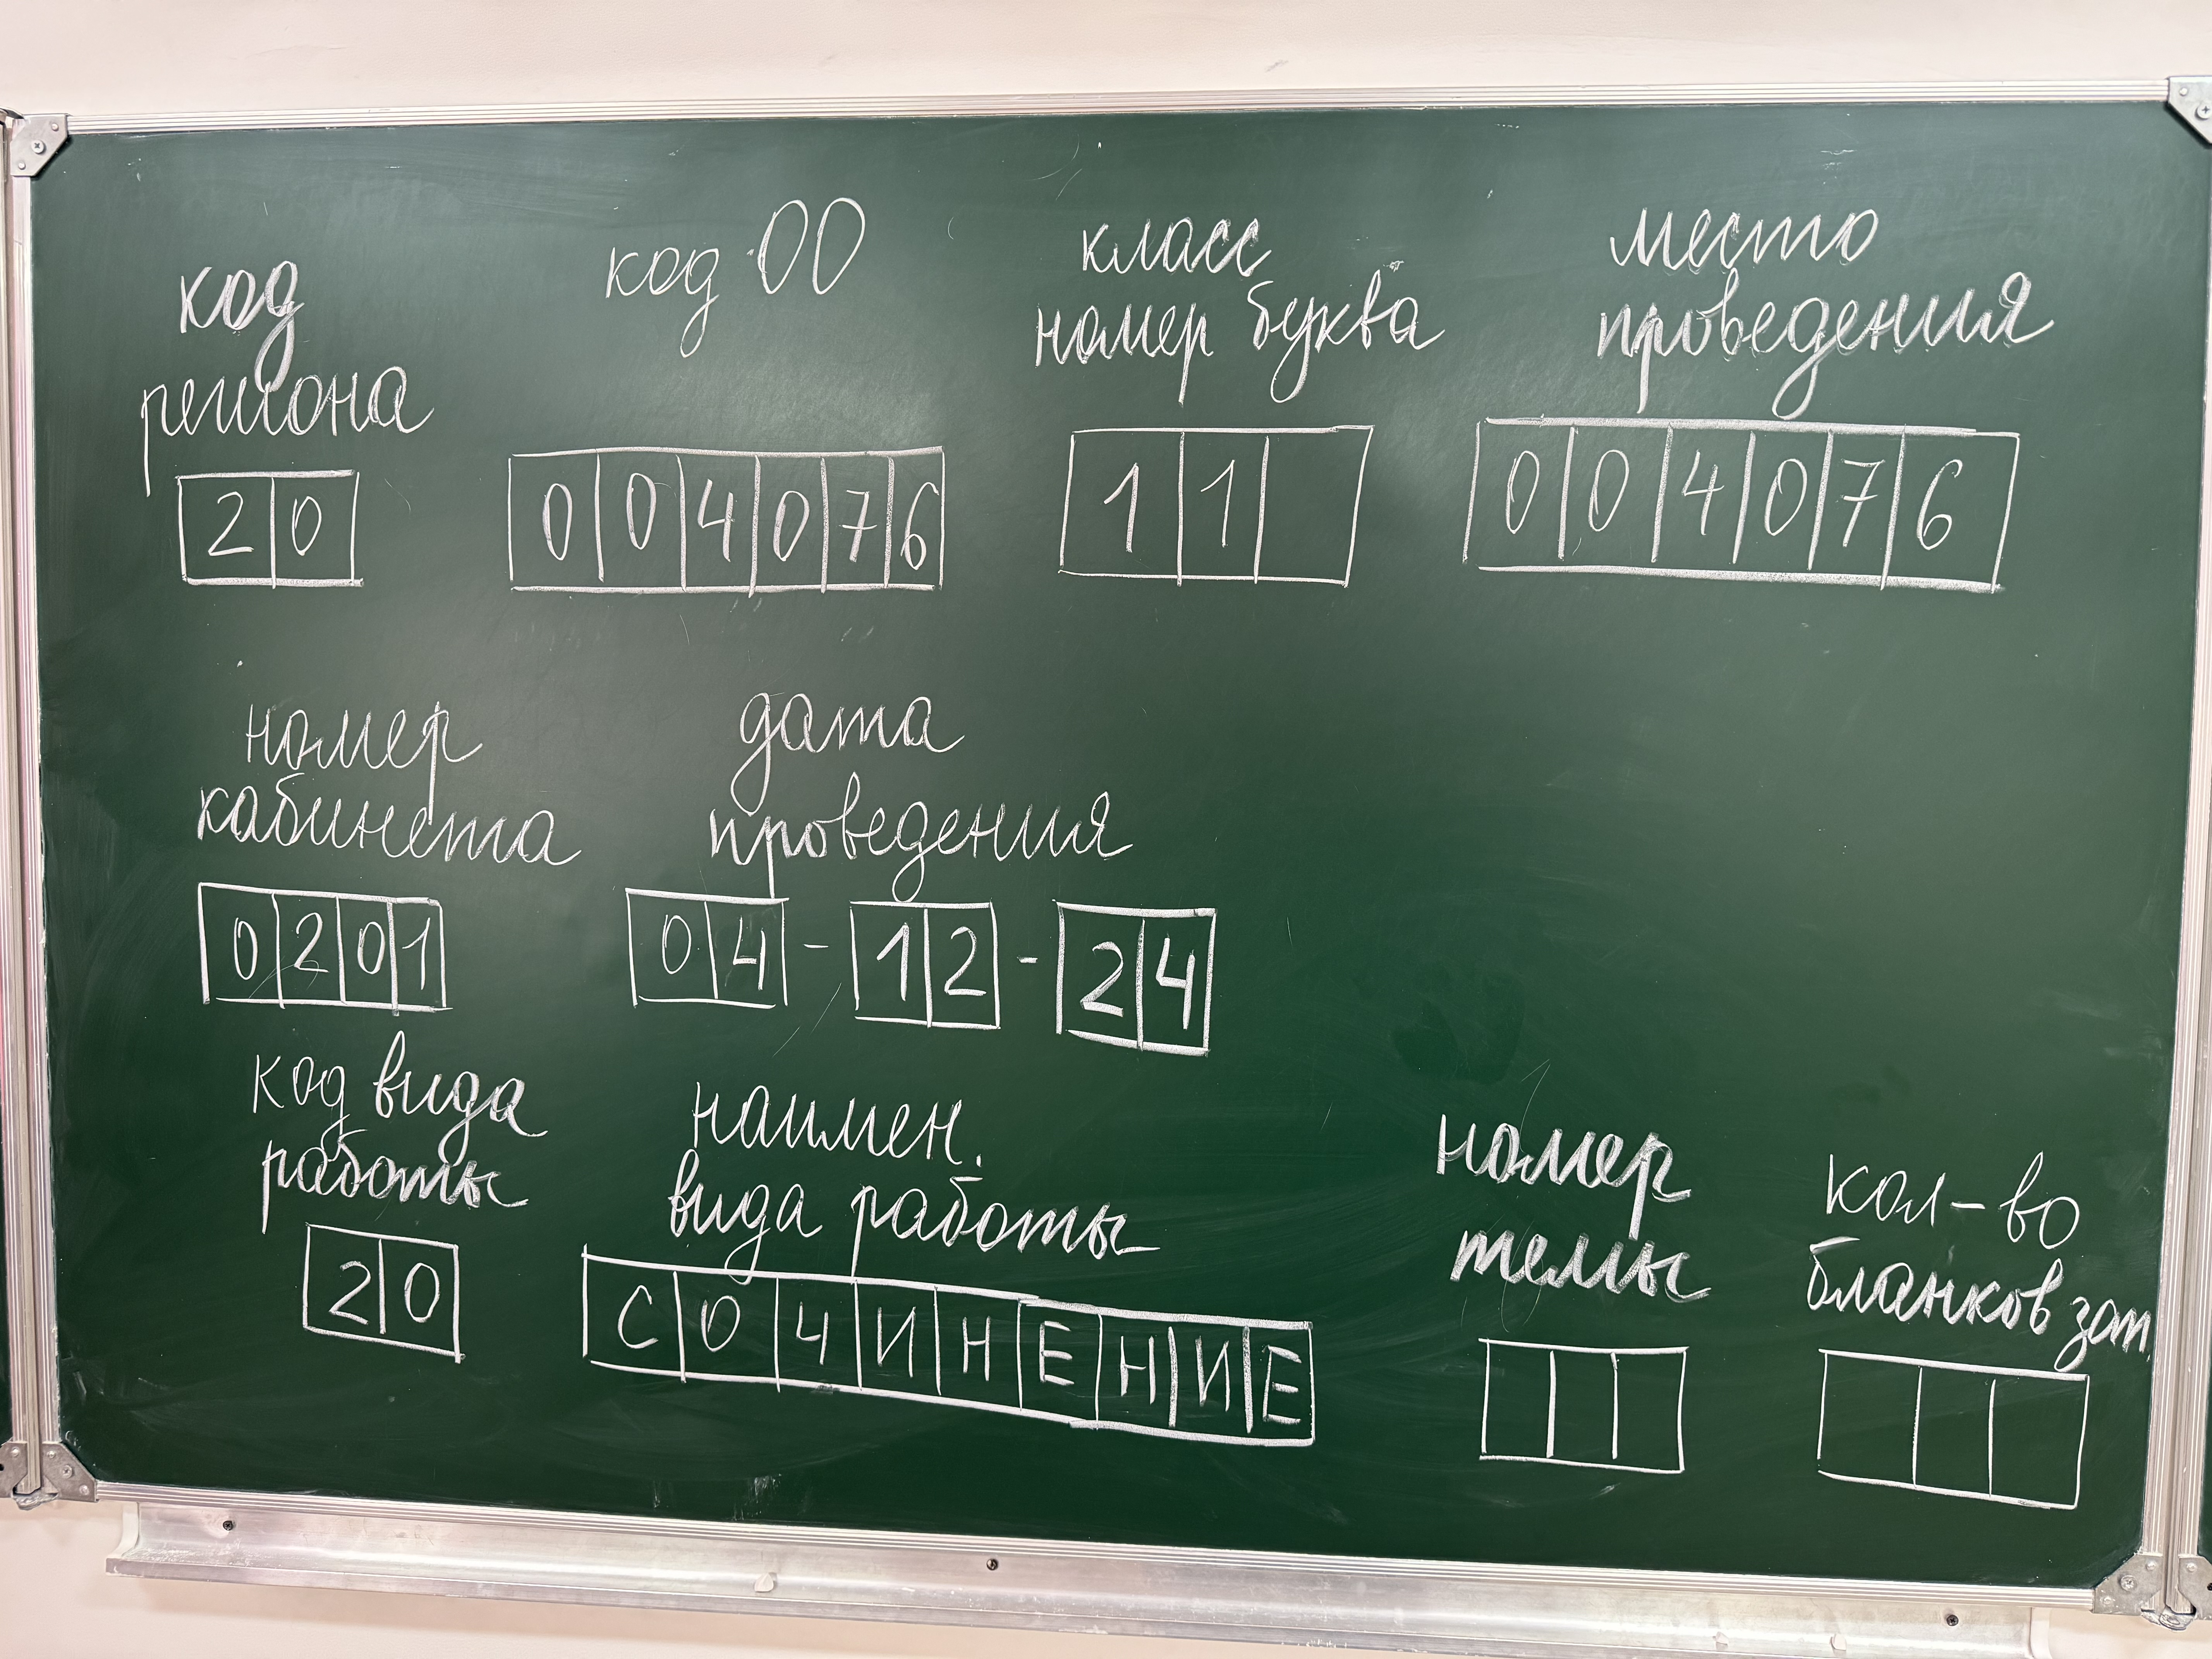 код
региона
20
код ОО
004076
класс
номер буква
11
место
проведения
004076
номер
кабинета
0201
дата
проведения
04-12-24
код вида
работы
20
наимен.
вида работы
СОЧИНЕНИЕ
номер
темы
кол-во
бланков зап.